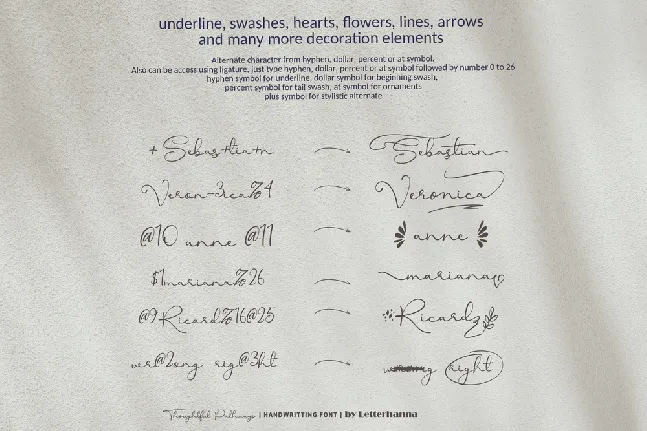 underline, swashes, hearts, flowers, lines, arrows
and many more decoration elements
Alternate character from hyphen, dollar, percent or at symbol.
Also can be access using ligature, just type hyphen, dollar, percent or at symbol followed by number 0 to 26
hyphen symbol for underline, dollar symbol for beginning swash,
percent symbol for tail swash, at symbol for ornaments
plus symbol for stylistic alternate
+Sebas+tia+n Sebastian
Veron-3ica%4 Veronica
@10 anne @11 anne
$1mariana%26 mariana
@9Ricard%16@25 Ricard
wr@2ong rig@3ht wrong right
Thoughtful Pathways | HANDWRITTING FONT | by Letterhanna